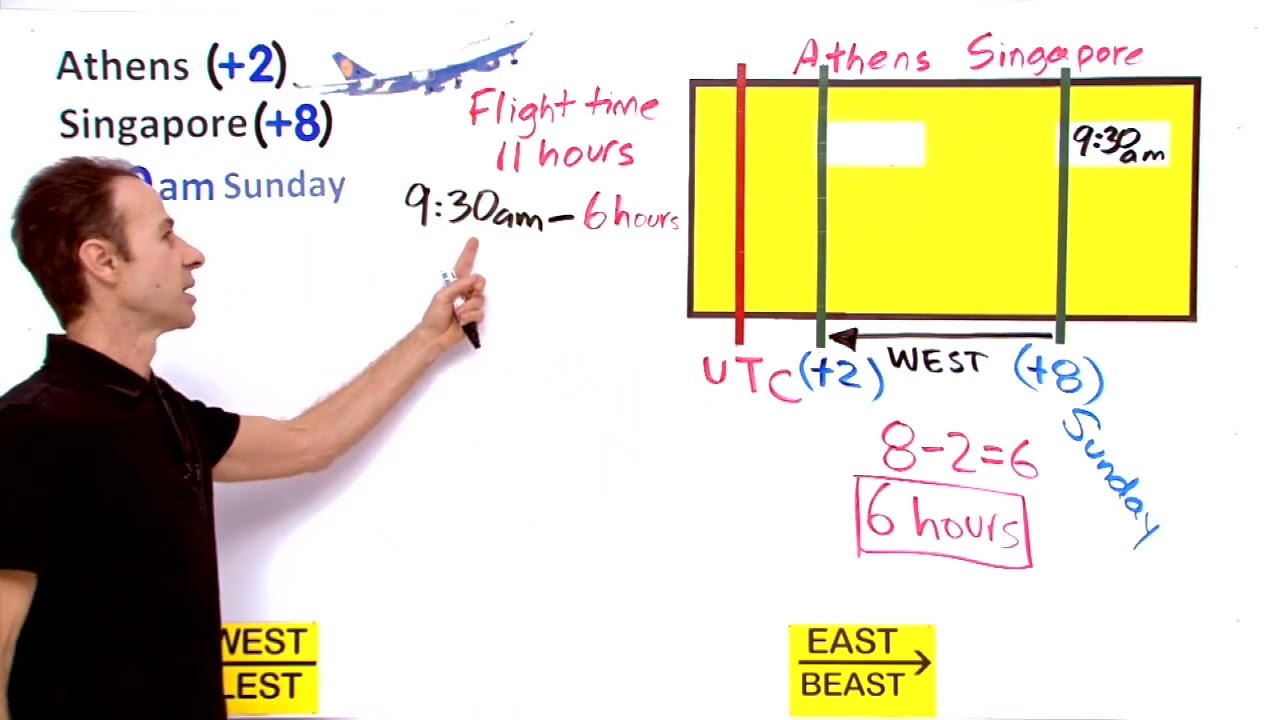 Athens (+2)
Singapore (+8)
am Sunday
Flight time
11 hours
9:30am - 6 hours
Athens Singapore
9:30am
UTC (+2) WEST (+8)
Sunday
8-2=6
6 hours
WEST
LEST
EAST
BEAST